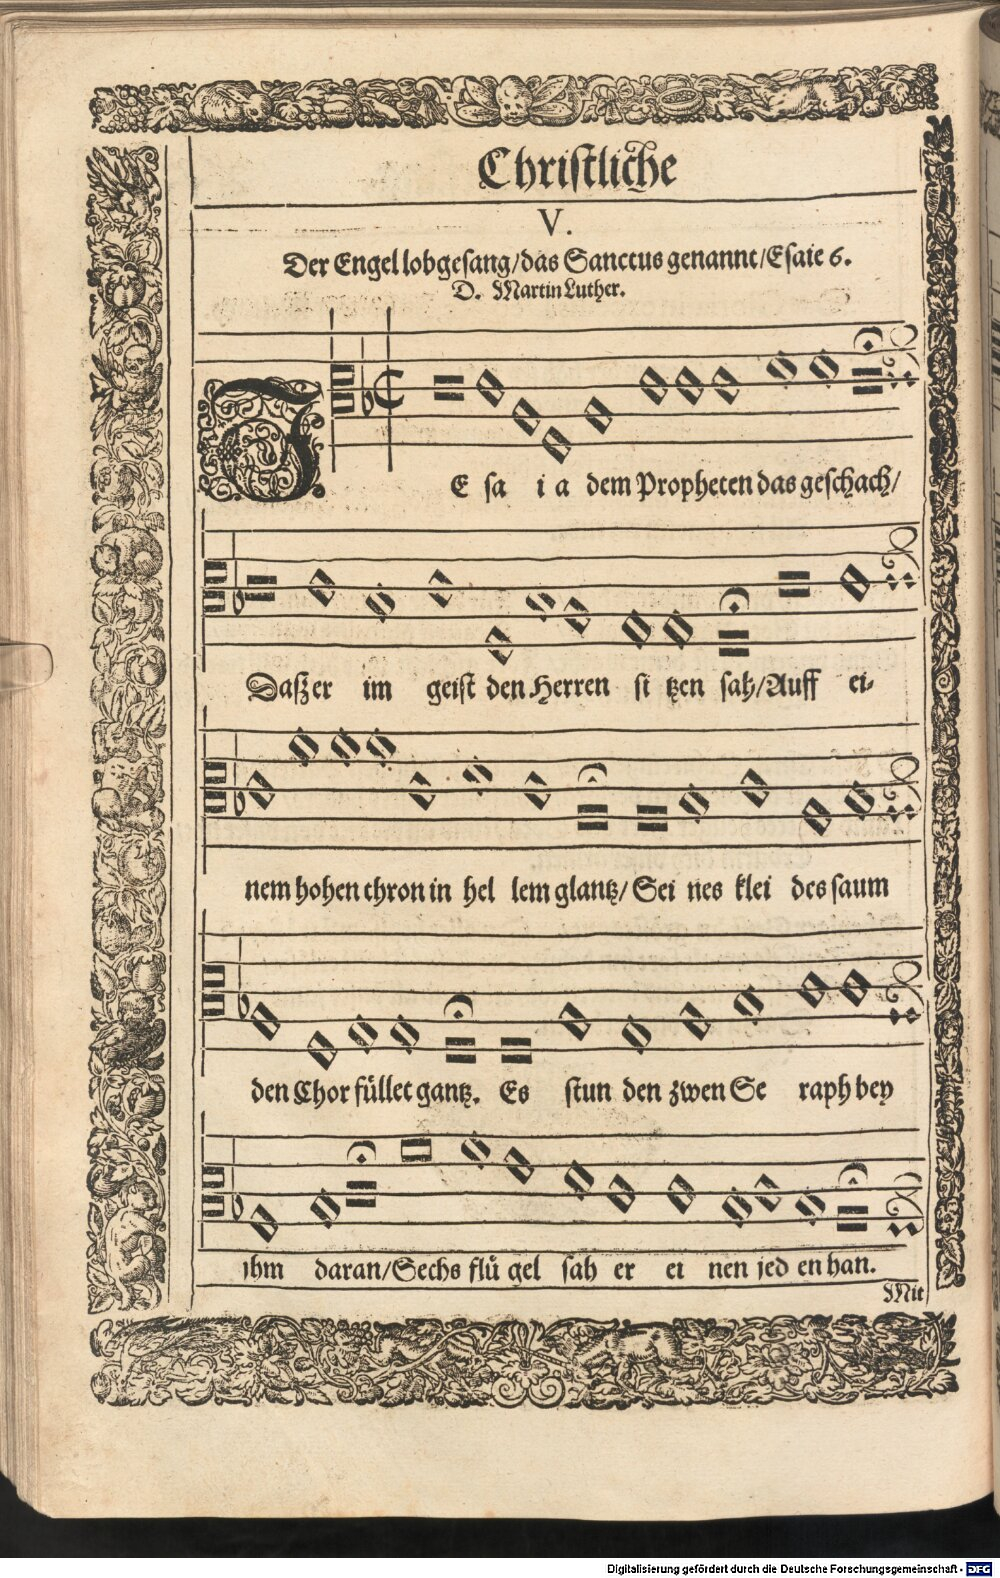 Christliche
V.
Der Engel lobgesang/das Sanctus genannt/Esaie 6.
D. Martin Luther.
JE sa i a dem Propheten das geschach/
Daß er im geist den Herren si tzen sah/Auff ei-
nem hohen thron in hel lem glantz/Sei nes klei des saum
den Chor füllet gantz. Es stun den zwen Se raph bey
ihm daran/Sechs flü gel sah er ei nen jed en han.
Mit
Digitalisierung gefördert durch die Deutsche Forschungsgemeinschaft - DFG